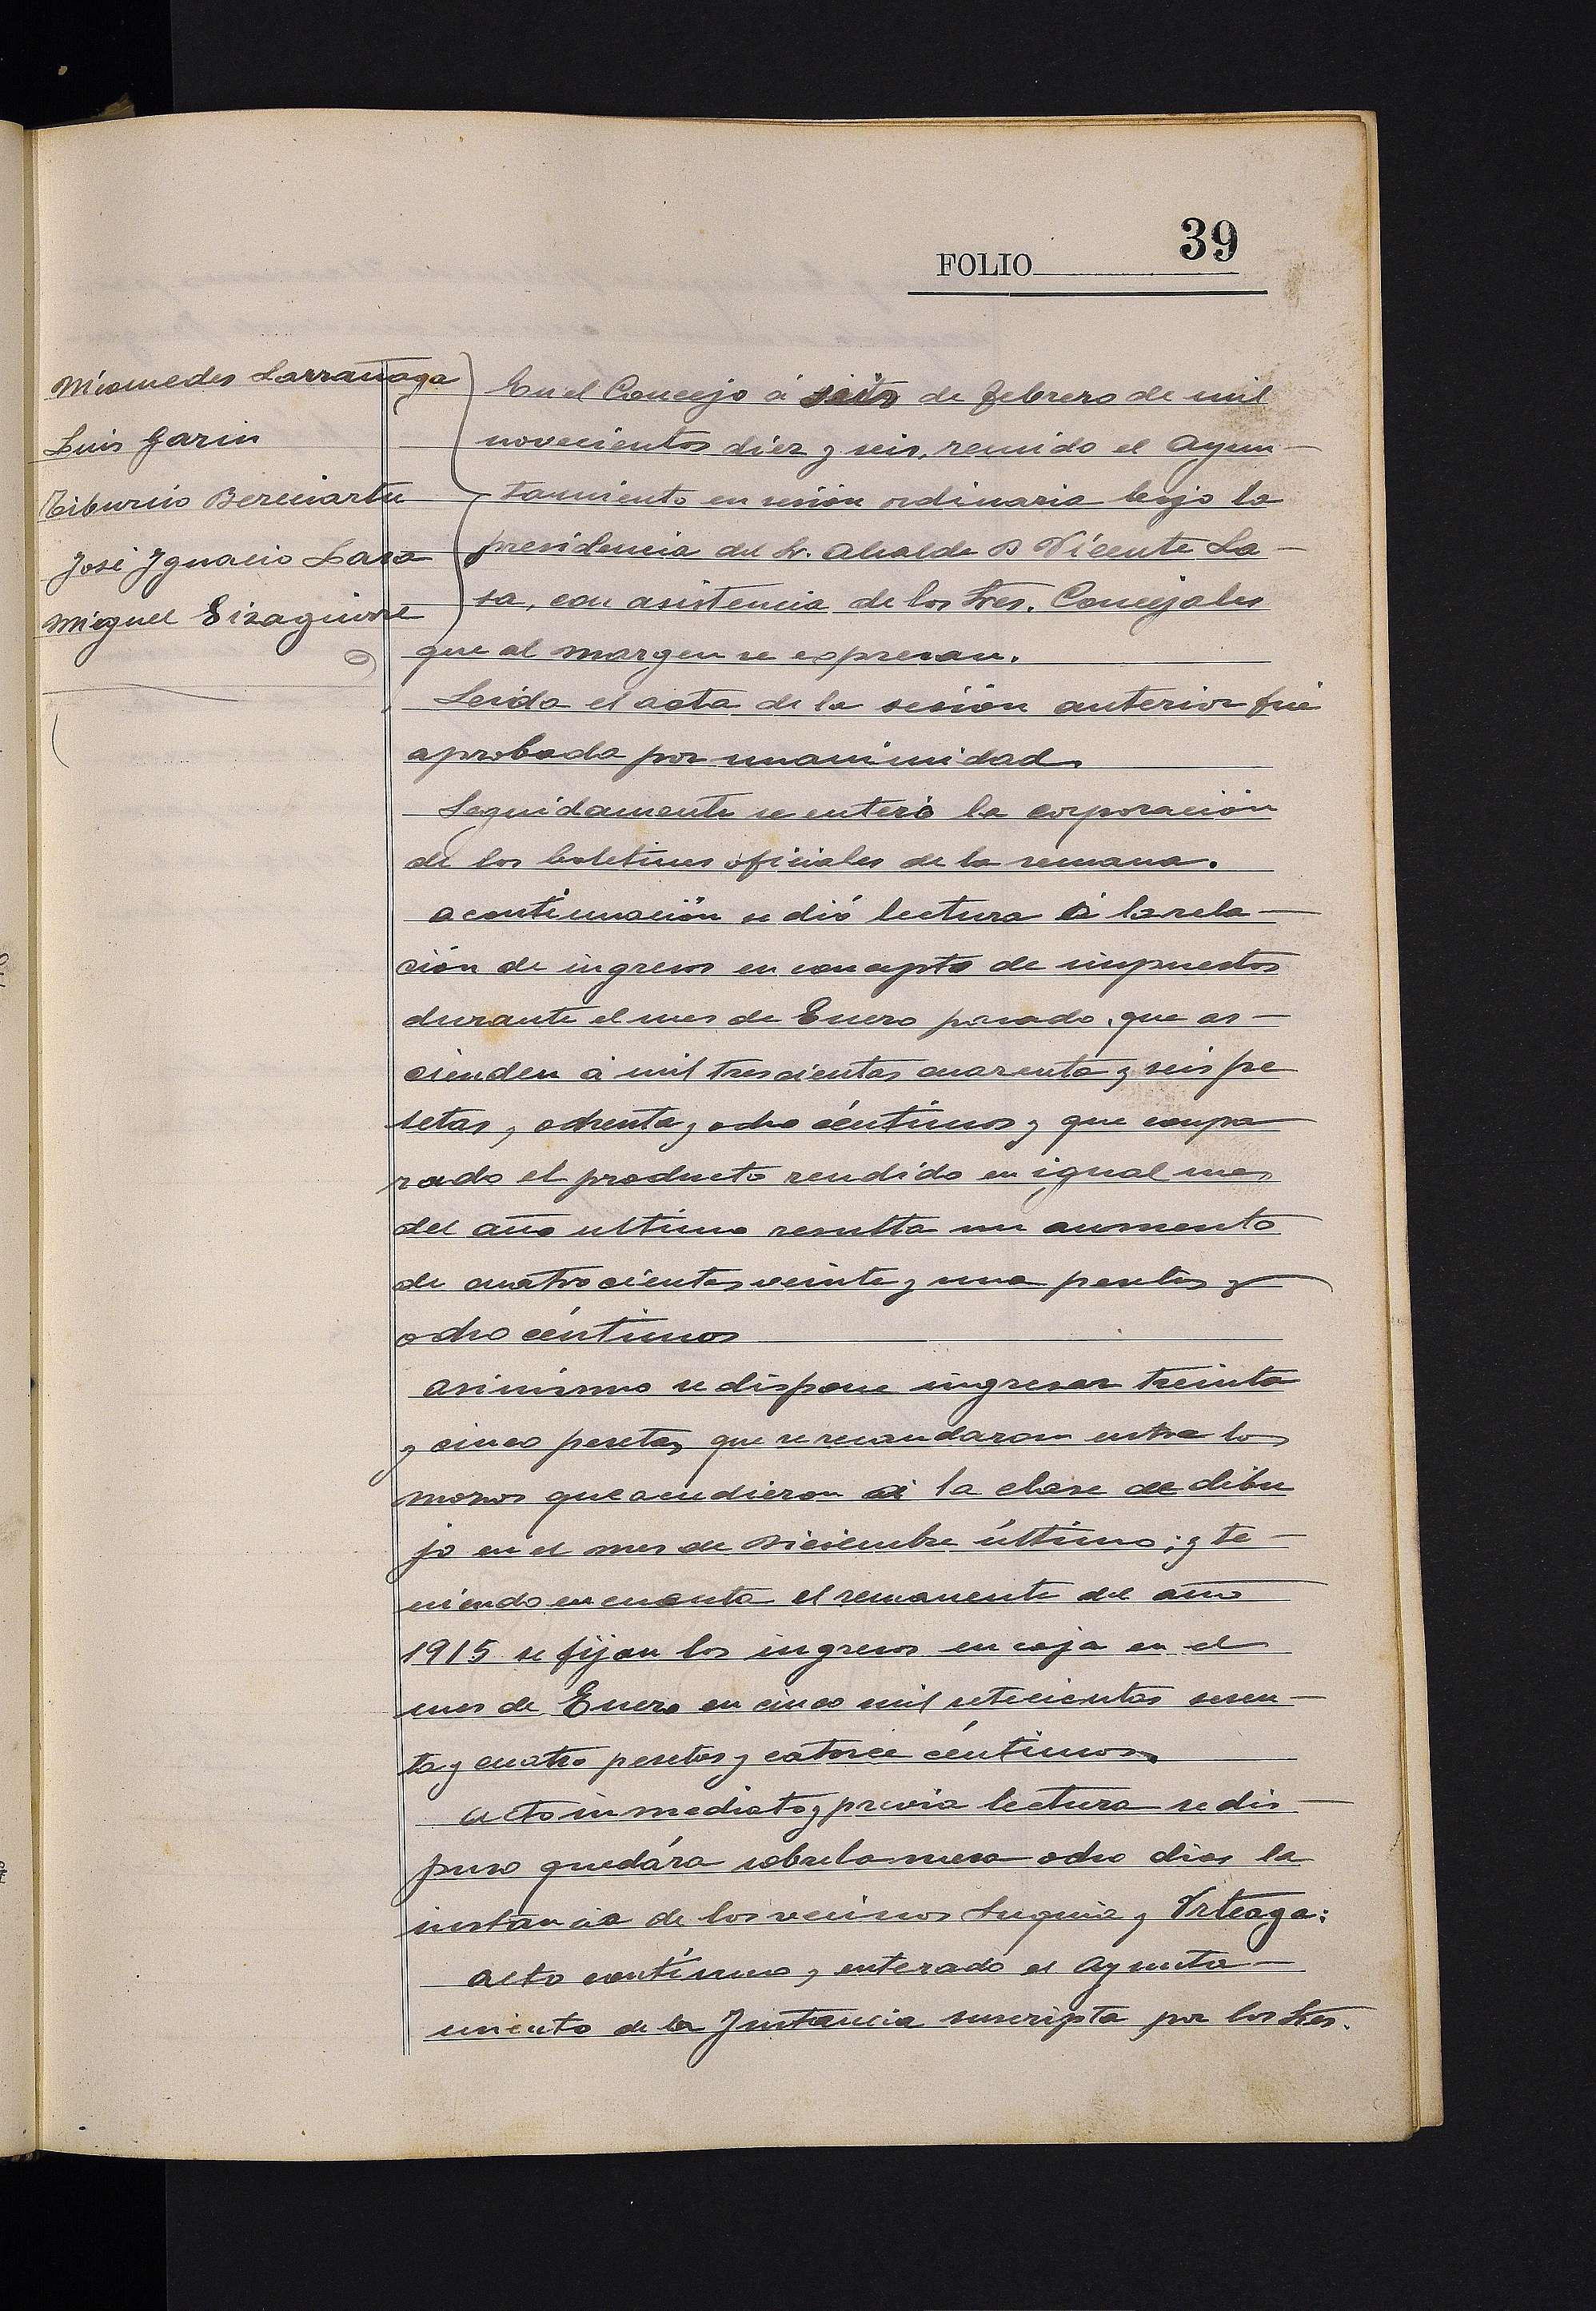 39
FOLIO
Nicomedes Larrañaga
Luis Garin
Tiburcio Bereciartu
José Ygnacio Lasa
Miguel Eizaguirre
En el Concejo á siete de febrero de mil
novecientos diez y seis, reunido el Ayun-
tamiento en sesión ordinaria bajo la
presidencia del Sr. Alcalde D Vicente La-
sa, con asistencia de los Sres. Concejales
que al margen se expresan.
Leida el acta de la sesión anterior fué
aprobada por unanimidad.
Seguidamente se enteró la corporación
de los boletines oficiales de la semana.
a continuación se dió lectura á la rela-
ción de ingresos en concepto de impuestos
durante el mes de Enero pasado, que as-
cienden á mil trescientas cuarenta y seis pe
setas, ochenta y ocho céntimos y que compa
rado el producto rendido en igual mes
del año ultimo resulta un aumento
de cuatrocientas veinte y una pesetas y
ocho céntimos
asimismo se dispone ingresar treinta
y cinco pesetas que se recaudaron entre los
mozos que acudieron á la clase de dibu
jo en el mes de Diciembre último; y te-
niendo en cuenta el remanente del año
1915 se fijan los ingresos en caja en el
mes de Enero en cinco mil setecientas sesen-
ta y cuatro pesetas y catorce céntimos.
acto inmediato y previa lectura se dis-
puso quedára sobre la mesa ocho dias la
instancia de los vecinos Suquia y Urteaga:
acto contínuo, enterado el Ayunta-
miento de la Ynstancia suscripta por los Sres.